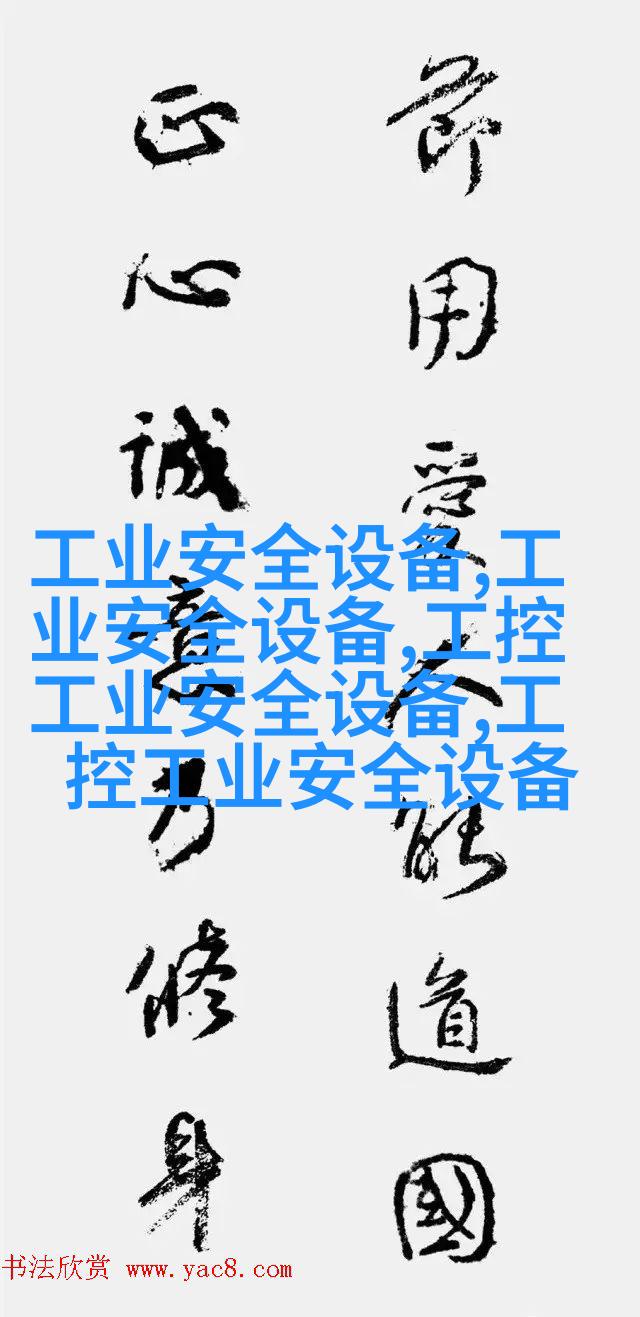 節用愛人能道國
正心誠意乃修身
工业安全设备,工
业安全设备,工控
工业安全设备,工
控工业安全设备
书法欣赏 www.yac8.com